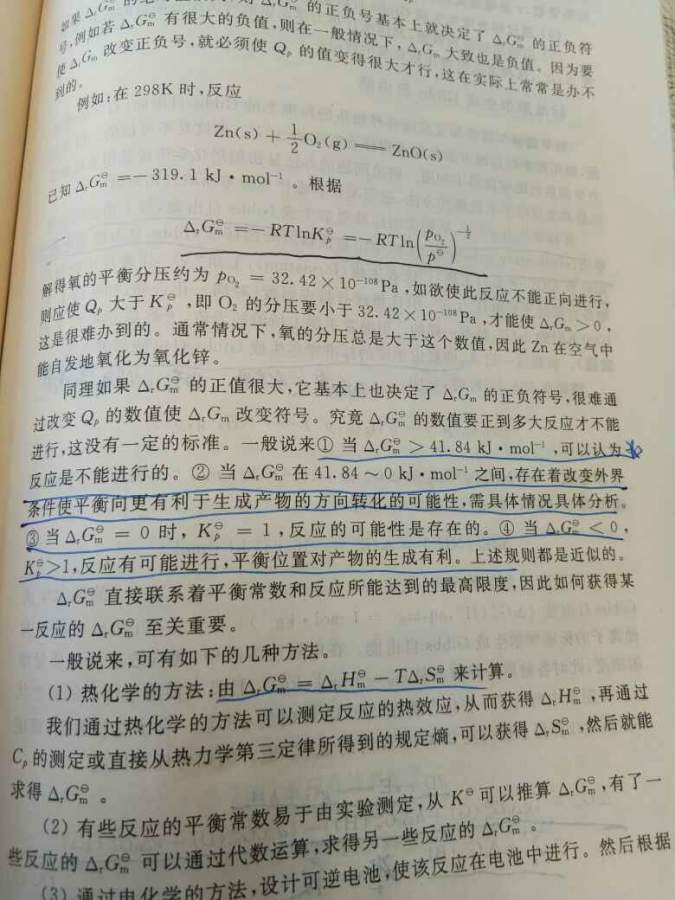 的正负号基本上就决定了 ΔᵣGₘ 的正负符
号,例如若 ΔᵣGₘ⊖ 有很大的负值,则在一般情况下,ΔᵣGₘ 大致也是负值。因为要
使 ΔᵣGₘ 改变正负号,就必须使 Qₚ 的值变得很大才行,这在实际上常常是办不
到的。
例如:在 298K 时,反应
Zn(s) + 1/2 O₂(g) ══ ZnO(s)
已知 ΔᵣGₘ⊖ =−319.1 kJ·mol⁻¹。根据
ΔᵣGₘ⊖ =−RTlnKₚ⊖ =−RTln(p_O₂/p⊖)^(−1/2)
解得氧的平衡分压约为 p_O₂ = 32.42×10⁻¹⁰⁸Pa,如欲使此反应不能正向进行,
则应使 Qₚ 大于 Kₚ⊖,即 O₂ 的分压要小于 32.42×10⁻¹⁰⁸Pa,才能使 ΔᵣGₘ>0,
这是很难办到的。通常情况下,氧的分压总是大于这个数值,因此 Zn 在空气中
能自发地氧化为氧化锌。
同理如果 ΔᵣGₘ⊖ 的正值很大,它基本上也决定了 ΔᵣGₘ 的正负符号,很难通
过改变 Qₚ 的数值使 ΔᵣGₘ 改变符号。究竟 ΔᵣGₘ⊖ 的数值要正到多大反应才不能
进行,这没有一定的标准。一般说来① 当 ΔᵣGₘ⊖ >41.84 kJ·mol⁻¹,可以认为
反应是不能进行的。② 当 ΔᵣGₘ⊖ 在 41.84～0 kJ·mol⁻¹ 之间,存在着改变外界
条件使平衡向更有利于生成产物的方向转化的可能性,需具体情况具体分析。
③ 当 ΔᵣGₘ⊖ = 0 时, Kₚ⊖ = 1,反应的可能性是存在的。④ 当 ΔᵣGₘ⊖ <0,
Kₚ⊖>1,反应有可能进行,平衡位置对产物的生成有利。上述规则都是近似的。
ΔᵣGₘ⊖ 直接联系着平衡常数和反应所能达到的最高限度,因此如何获得某
一反应的 ΔᵣGₘ⊖ 至关重要。
一般说来,可有如下的几种方法。
(1) 热化学的方法:由 ΔᵣGₘ⊖ = ΔᵣHₘ⊖ − TΔᵣSₘ⊖ 来计算。
我们通过热化学的方法可以测定反应的热效应,从而获得 ΔᵣHₘ⊖,再通过
Cₚ 的测定或直接从热力学第三定律所得到的规定熵,可以获得 ΔᵣSₘ⊖,然后就能
求得 ΔᵣGₘ⊖ 。
(2) 有些反应的平衡常数易于由实验测定,从 K⊖ 可以推算 ΔᵣGₘ⊖,有了一
些反应的 ΔᵣGₘ⊖ 可以通过代数运算,求得另一些反应的 ΔᵣGₘ⊖ 。
(3) 通过电化学的方法,设计可逆电池,使该反应在电池中进行。然后根据